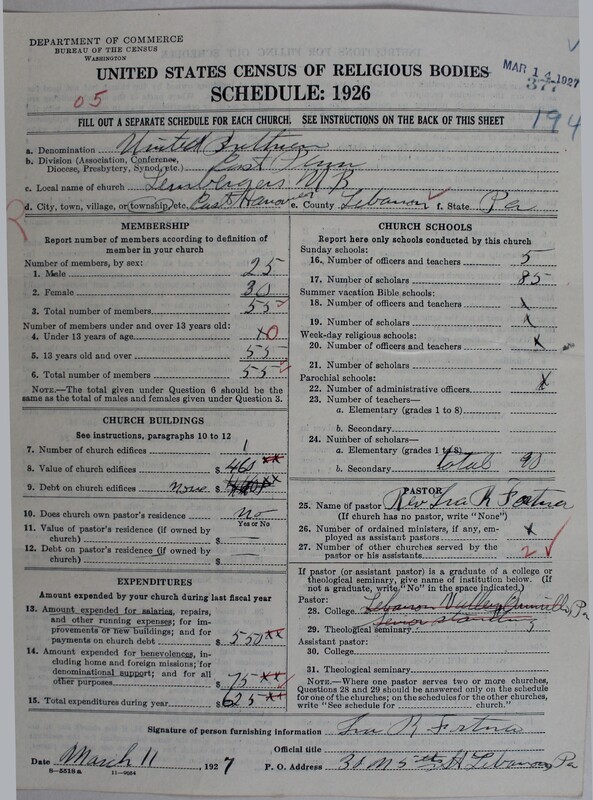 DEPARTMENT OF COMMERCE
BUREAU OF THE CENSUS
WASHINGTON
UNITED STATES CENSUS OF RELIGIOUS BODIES
SCHEDULE: 1926
MAR 14 1927
377
05
194
FILL OUT A SEPARATE SCHEDULE FOR EACH CHURCH. SEE INSTRUCTIONS ON THE BACK OF THIS SHEET
a. Denomination United Brethren
b. Division (Association, Conference, Diocese, Presbytery, Synod, etc.) East Penn
c. Local name of church Lembergers U B
d. City, town, village, or township, etc. East Hanover e. County Lebanon f. State Pa
MEMBERSHIP
Report number of members according to definition of member in your church
Number of members, by sex:
1. Male 25
2. Female 30
3. Total number of members 55
Number of members under and over 13 years old:
4. Under 13 years of age x0
5. 13 years old and over 55
6. Total number of members 55
NOTE.—The total given under Question 6 should be the same as the total of males and females given under Question 3.
CHURCH BUILDINGS
See instructions, paragraphs 10 to 12
7. Number of church edifices 1
8. Value of church edifices $
9. Debt on church edifices None $
10. Does church own pastor's residence? No
Yes or No
11. Value of pastor's residence (if owned by church) $ —
12. Debt on pastor's residence (if owned by church) $ —
EXPENDITURES
Amount expended by your church during last fiscal year
13. Amount expended for salaries, repairs, and other running expenses; for improvements or new buildings; and for payments on church debt $ 550 xx
14. Amount expended for benevolences, including home and foreign missions; for denominational support; and for all other purposes $ 75 xx
15. Total expenditures during year $ 625 xx
CHURCH SCHOOLS
Report here only schools conducted by this church
Sunday schools:
16. Number of officers and teachers 5
17. Number of scholars 85
Summer vacation Bible schools:
18. Number of officers and teachers x
19. Number of scholars x
Week-day religious schools:
20. Number of officers and teachers x
21. Number of scholars
Parochial schools:
22. Number of administrative officers x
23. Number of teachers—
a. Elementary (grades 1 to 8)
b. Secondary
24. Number of scholars—
a. Elementary (grades 1 to 8)
b. Secondary total 90
PASTOR
25. Name of pastor Rev. Ira R Fortna
(If church has no pastor, write "None")
26. Number of ordained ministers, if any, employed as assistant pastors x
27. Number of other churches served by the pastor or his assistants 2
If pastor (or assistant pastor) is a graduate of a college or theological seminary, give name of institution below. (If not a graduate, write "No" in the space indicated.)
Pastor:
28. College Lebanon Valley, Annville, Pa
29. Theological seminary Senior standing
Assistant pastor:
30. College
31. Theological seminary
NOTE.—Where one pastor serves two or more churches, Questions 28 and 29 should be answered only on the schedule for one of the churches; on the schedules for the other churches, write "See schedule for church."
Signature of person furnishing information Ira R Fortna
Official title
Date March 11, 1927 P. O. Address N 5th St Lebanon, Pa
8—5518a 11—9054